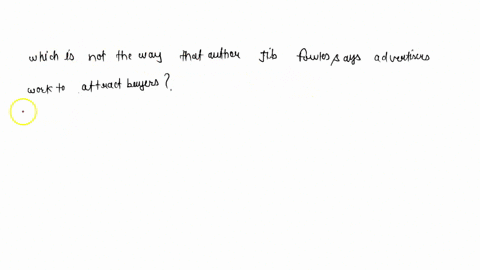 which is not the way that author Jib fowles, says advertisers
work to attract buyers?